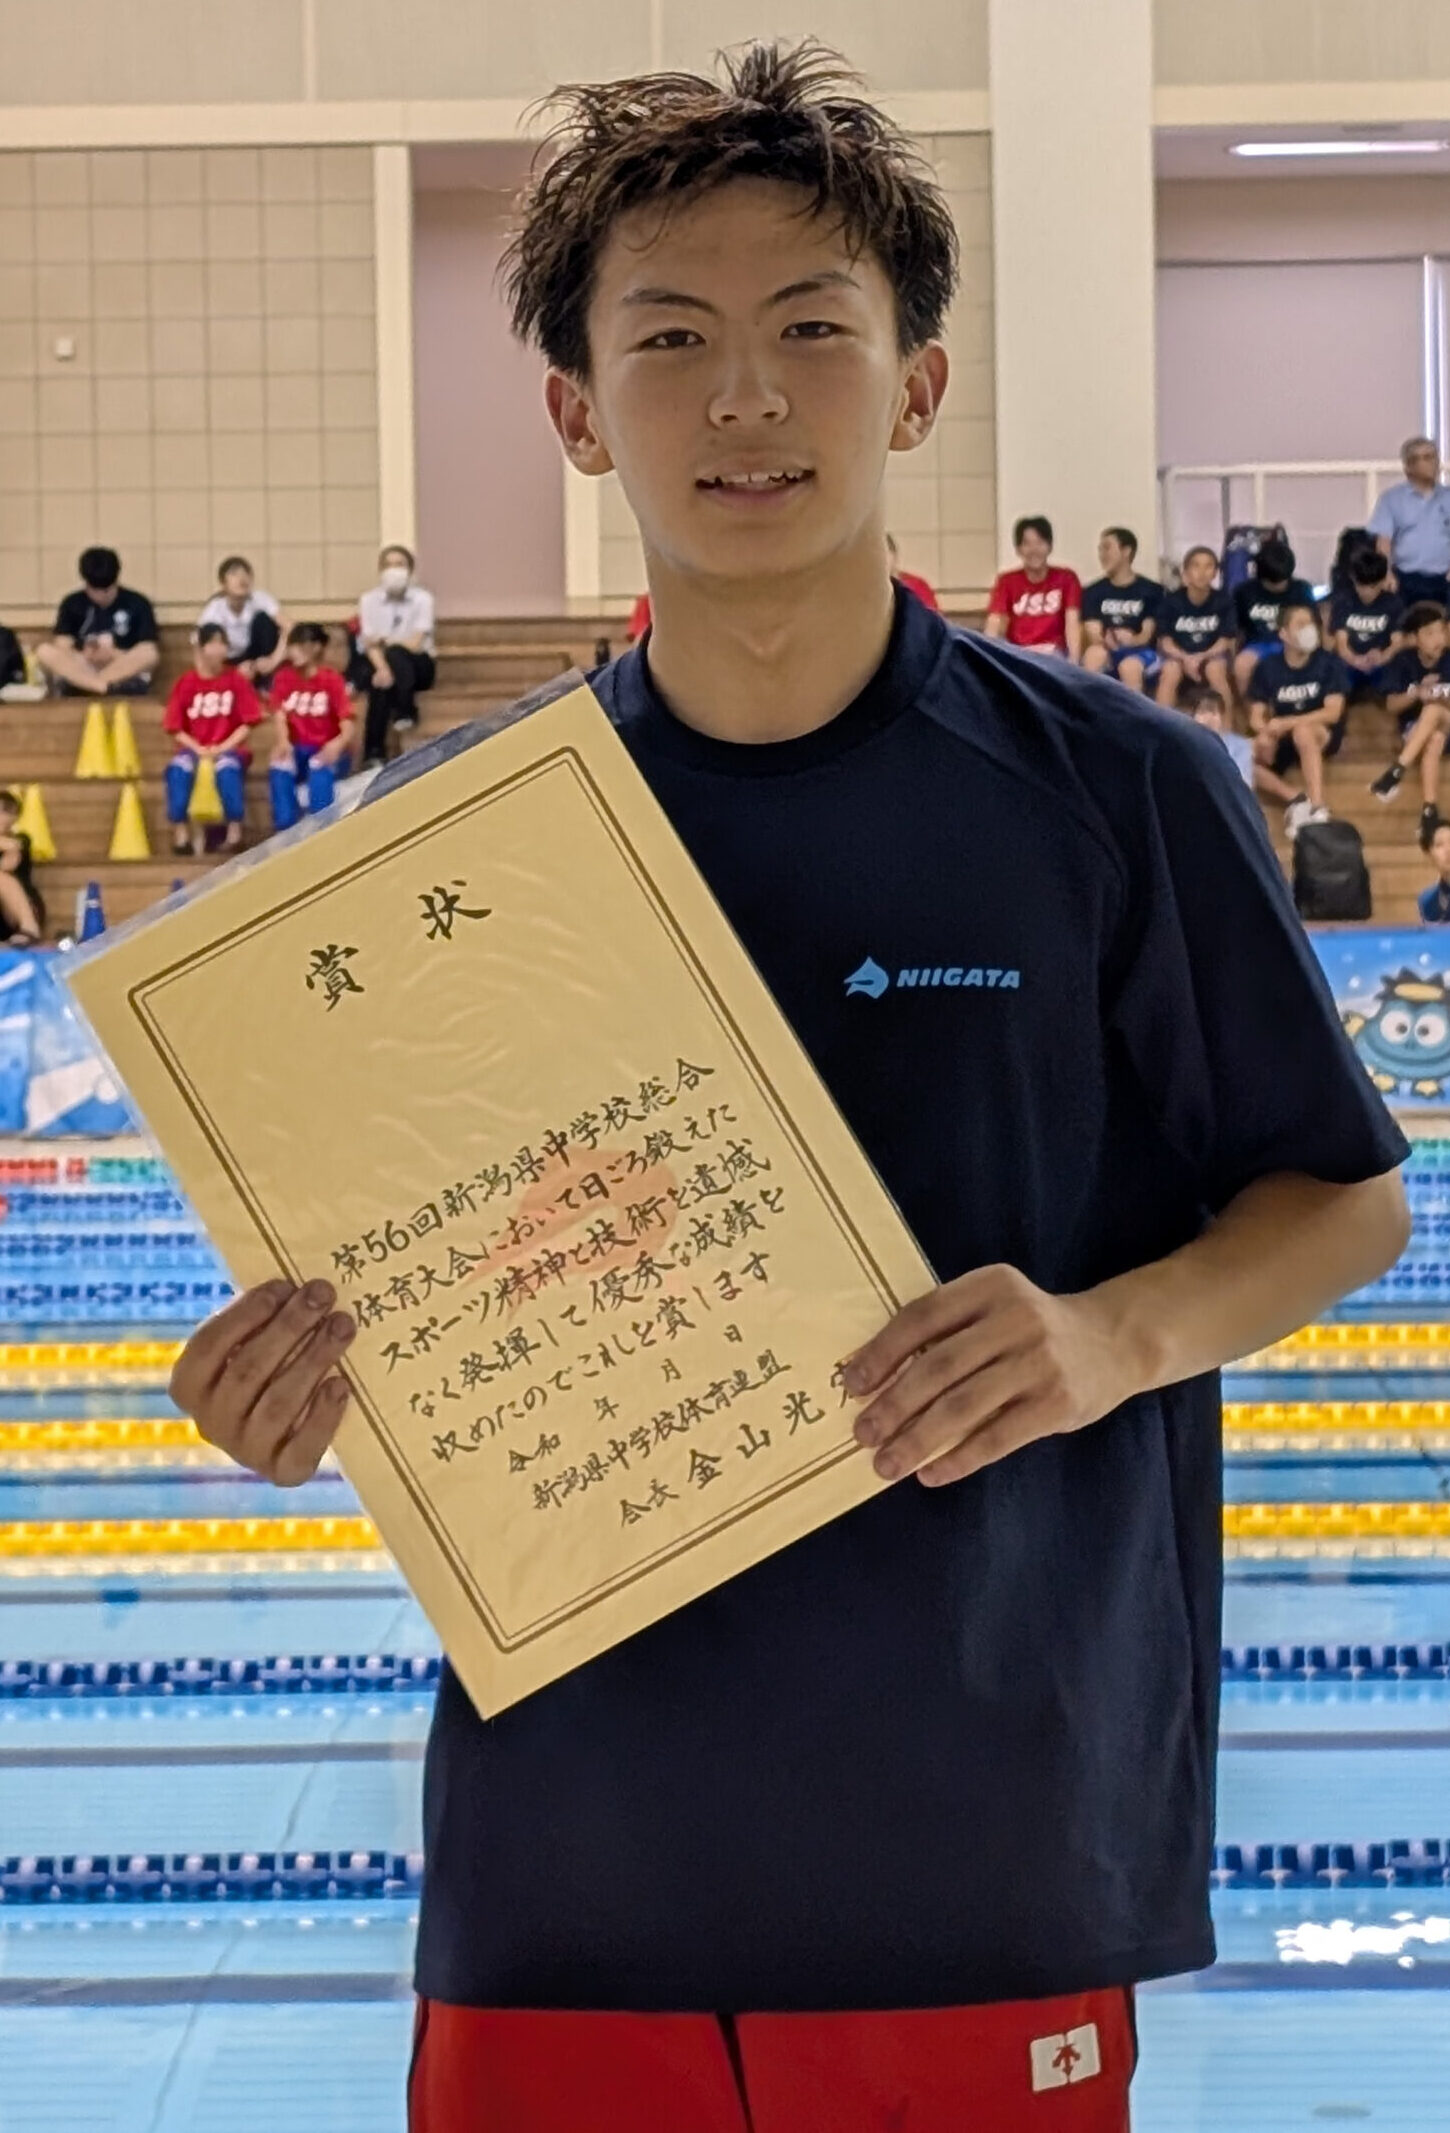 賞状
第56回新潟県中学校総合
体育大会において日ごろ鍛えた
スポーツ精神と技術を遺憾
なく発揮して優秀な成績を
収めたのでこれを賞します
令和 年 月 日
新潟県中学校体育連盟
会長 金山光
NIIGATA
JSS
JSS
JSS